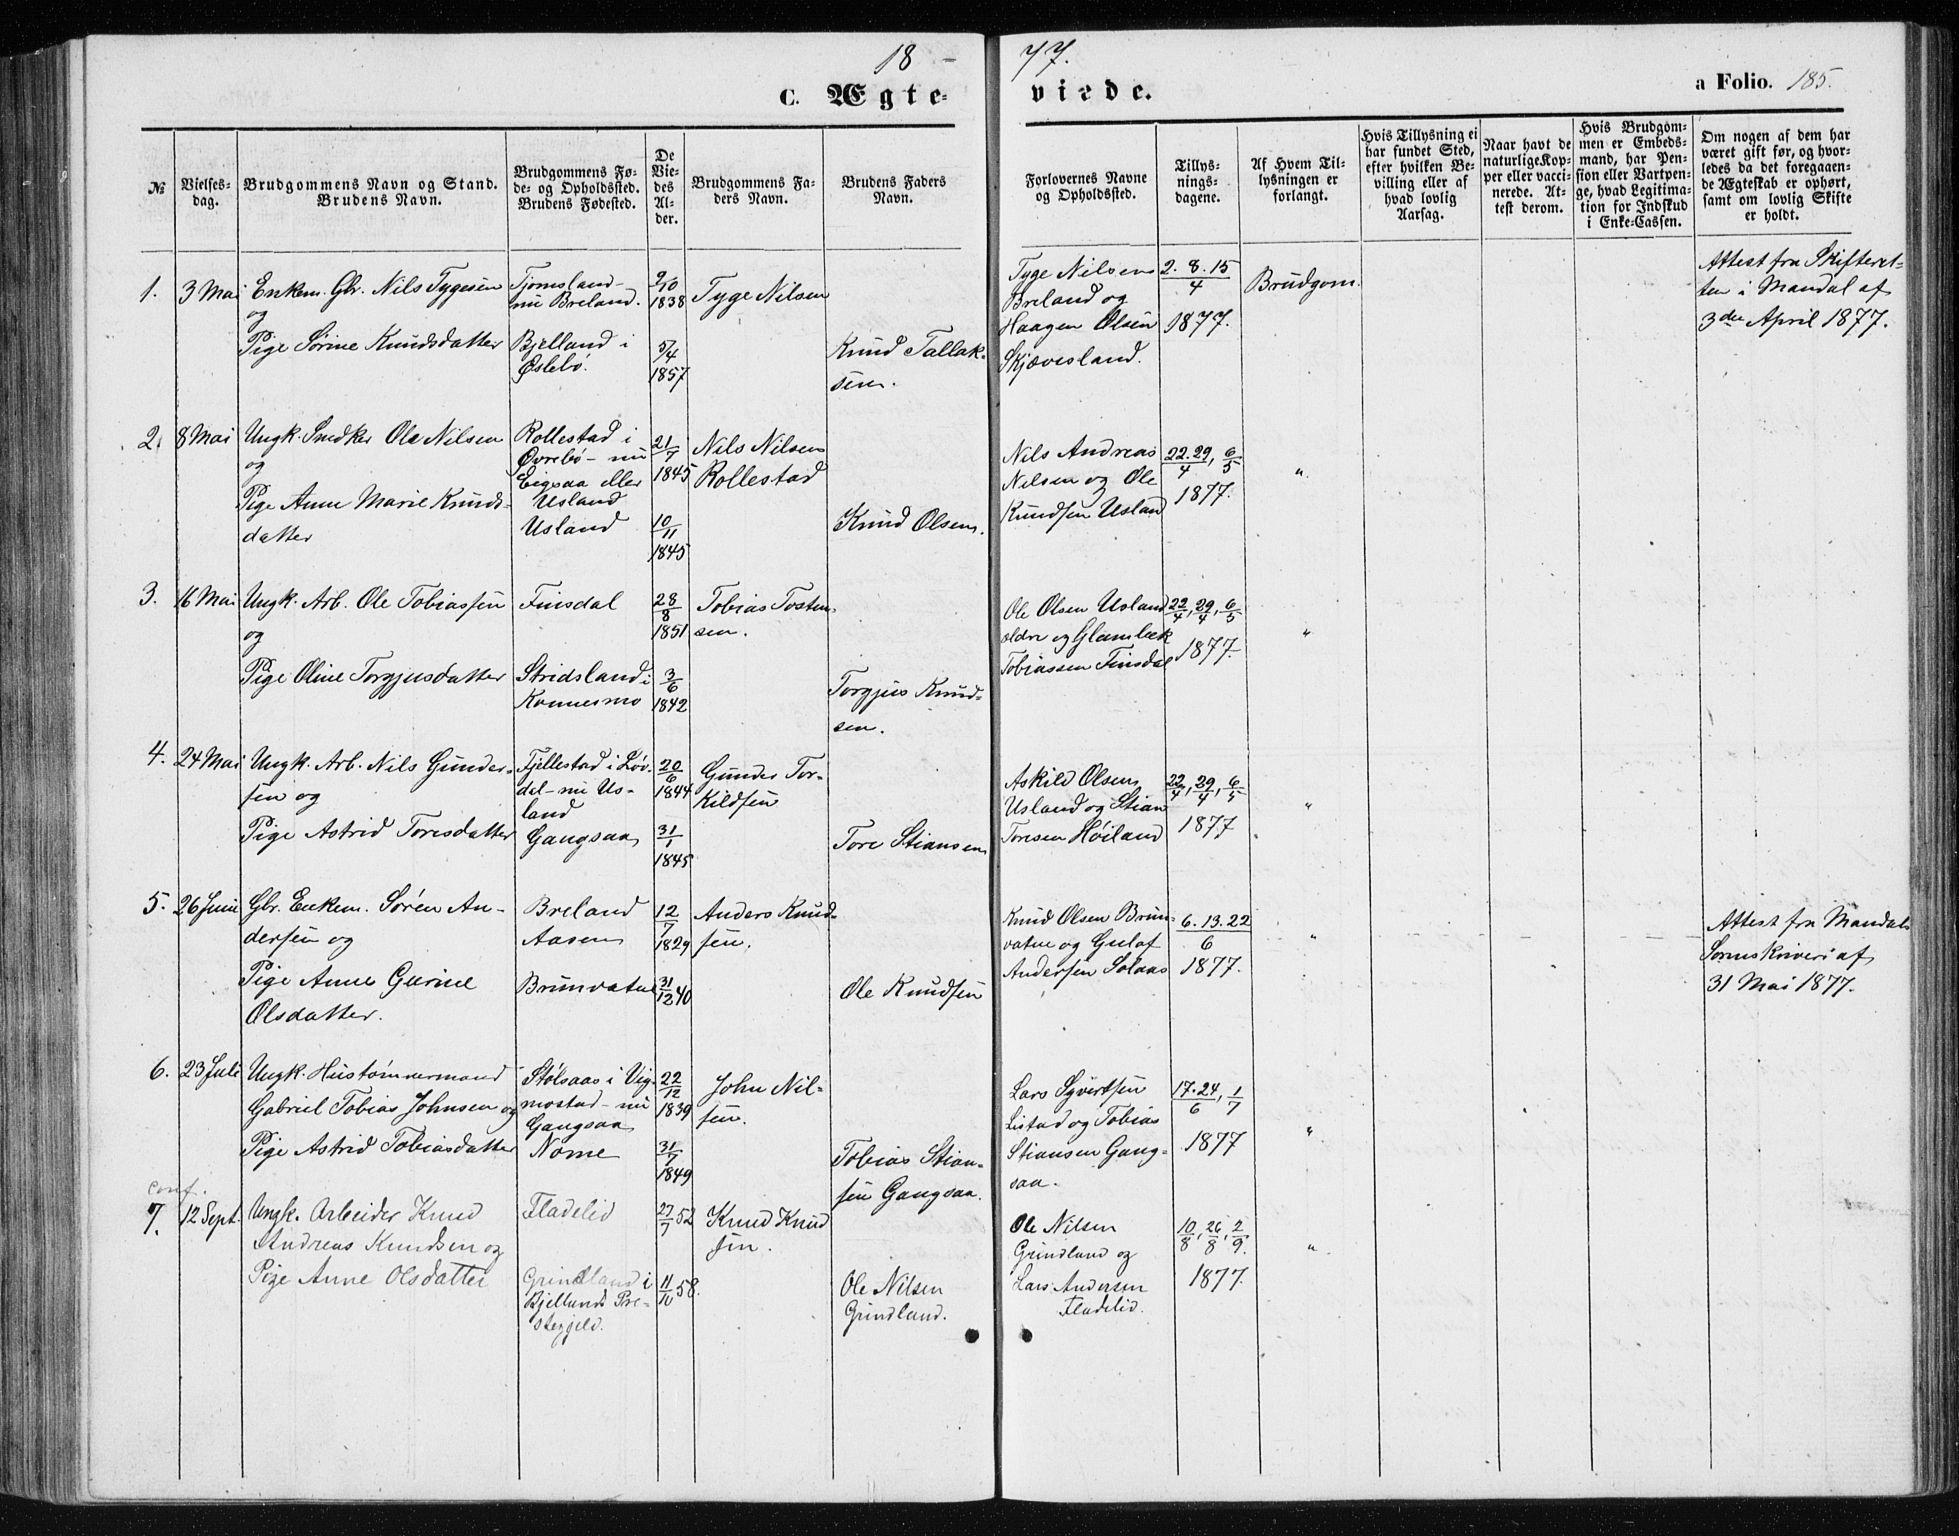 18 - 77.
C. Ægte- viede. a Folio. 185.
№
Vielses-
dag.
Brudgommens Navn og Stand.
Brudens Navn.
Brudgommens Fø-
de- og Opholdssted.
Brudens Fødested.
De
Vie-
des
Al-
der.
Brudgommens Fa-
ders Navn.
Brudens Faders
Navn.
Forlovernes Navne
og Opholdssted.
Tillys-
nings-
dagene.
Af Hvem Til-
lysningen er
forlangt.
Hvis Tillysning ei
har fundet Sted,
efter hvilken Be-
villing eller af
hvad lovlig
Aarsag.
Naar havt de
naturlige Kop-
per eller vacci-
nerede. At-
test derom.
Hvis Brudgom-
men er Embeds-
mand, har Pen-
sion eller Vartpen-
ge, hvad Legitima-
tion for Indskud
i Enke-Cassen.
Om nogen af dem har
været gift før, og hvor-
ledes da det foregaaen-
de Ægteskab er ophørt,
samt om lovlig Skifte
er holdt.
1. 3 Mai
Enkem. Gbr. Nils Tygesen
og
Pige Sørine Knudsdatter
Tjomsland-
nu Breland.
Bjelland i
Øslebö.
9/10
1838
5/4
1857
Tyge Nilsen
Knud Tallak-
sen.
Tyge Nilsen
Breland og
Haagen Olsen
Skjævesland.
2. 8. 15
4
1877.
Brudgom.
Attest fra Skifteret-
ten i Mandal af
3die April 1877.
2. 8 Mai
Ungk. Snedker Ole Nilsen
og
Pige Anne Marie Knuds-
datter
Rollestad i
Øvrebö - nu
Eegsaa eller
Usland
Usland
21/7
1845
10/11
1845
Nils Nilsen
Rollestad
Knud Olsen.
Nils Andreas
Nilsen og Ole
Knudsen Usland
22. 29, 6
4 5
1877.
"
3. 16 Mai
Ungk. Arb. Ole Tobiassen
og
Pige Oline Torgjusdatter
Finsdal
Stridsland i
Konnesmo
28/8
1851
3/6
1842
Tobias Tosten-
sen.
Torgjus Knud-
sen.
Ole Olsen Usland
ældre og Glambek
Tobiassen Finsdal
22/4, 29/4, 6/5
1877.
"
4. 24 Mai
Ungk. Arb. Nils Gunder-
sen og
Pige Astrid Toresdatter
Fjellestad i Löv-
dal - nu Us-
land
Gangsaa
20/6
1844
31/1
1845
Gunder Tor-
kildsen
Tore Stiansen
Askild Olsen
Usland og Stian
Toresen Höiland
22/4, 29/4, 6/5
1877
"
5. 26 Juni
Gbr. Enkem. Sören An-
dersen og
Pige Anne Gurine
Olsdatter.
Breland
Aasen
Brunvatne
12/7
1829
31/12 40
Anders Knud-
sen.
Ole Knudsen
Knud Olsen Brun-
vatne og Gulof
Andersen Solaas
6. 13. 22
6
1877.
"
Attest fra Mandals
Sorenskriveri af
31 Mai 1877.
6. 23 Juli
Ungk. Hustömmermand
Gabriel Tobias Johnsen og
Pige Astrid Tobiasdatter
Stölsaas i Vig-
mostad - nu
Gangsaa
Nome
22/12
1839
31/7
1849
John Nil-
sen.
Tobias Stian-
sen Gangsaa.
Lars Syvertsen
Listad og Tobias
Stiansen Gang-
saa.
17. 24, 1
6 7
1877
"
conf.
7. 12 Sept.
Ungk. Arbeider Knud
Andreas Knudsen og
Pige Anne Olsdatter
Fladelid
Grindland i
Bjellands Præ-
stegjeld.
27/7 52
11/10 58.
Knud Knud
sen.
Ole Nilsen
Grindland.
Ole Nilsen
Grindland og
Lars Andersen
Fladelid.
10/8, 26/8, 2/9.
1877.
"